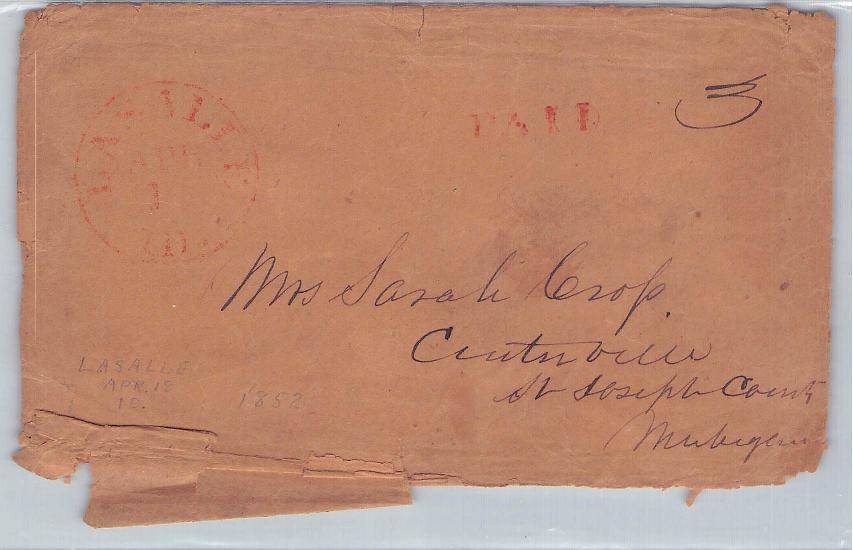 LA SALLE
APR
1
PAID
3
Mrs Sarah Cross
Centreville
St Joseph County
Michigan
LASALLE
APR. 18
10.
1852